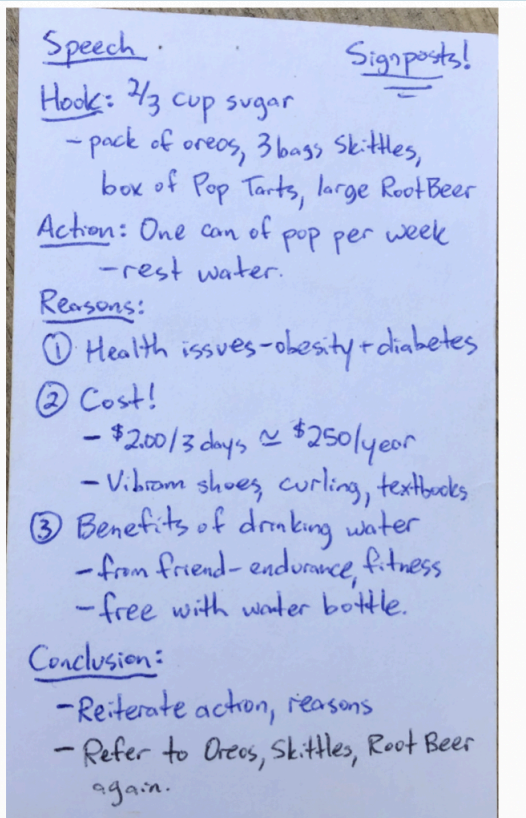 Speech.
Signposts!
Hook: 2/3 cup sugar
- pack of oreos, 3 bags Skittles,
box of Pop Tarts, large Root Beer
Action: One can of pop per week
- rest water.
Reasons:
① Health issues - obesity + diabetes
② Cost!
- $2.00/3 days ≃ $250/year
- Vibram shoes, curling, textbooks
③ Benefits of drinking water
- from friend - endurance, fitness
- free with water bottle.
Conclusion:
- Reiterate action, reasons
- Refer to Oreos, Skittles, Root Beer
again.